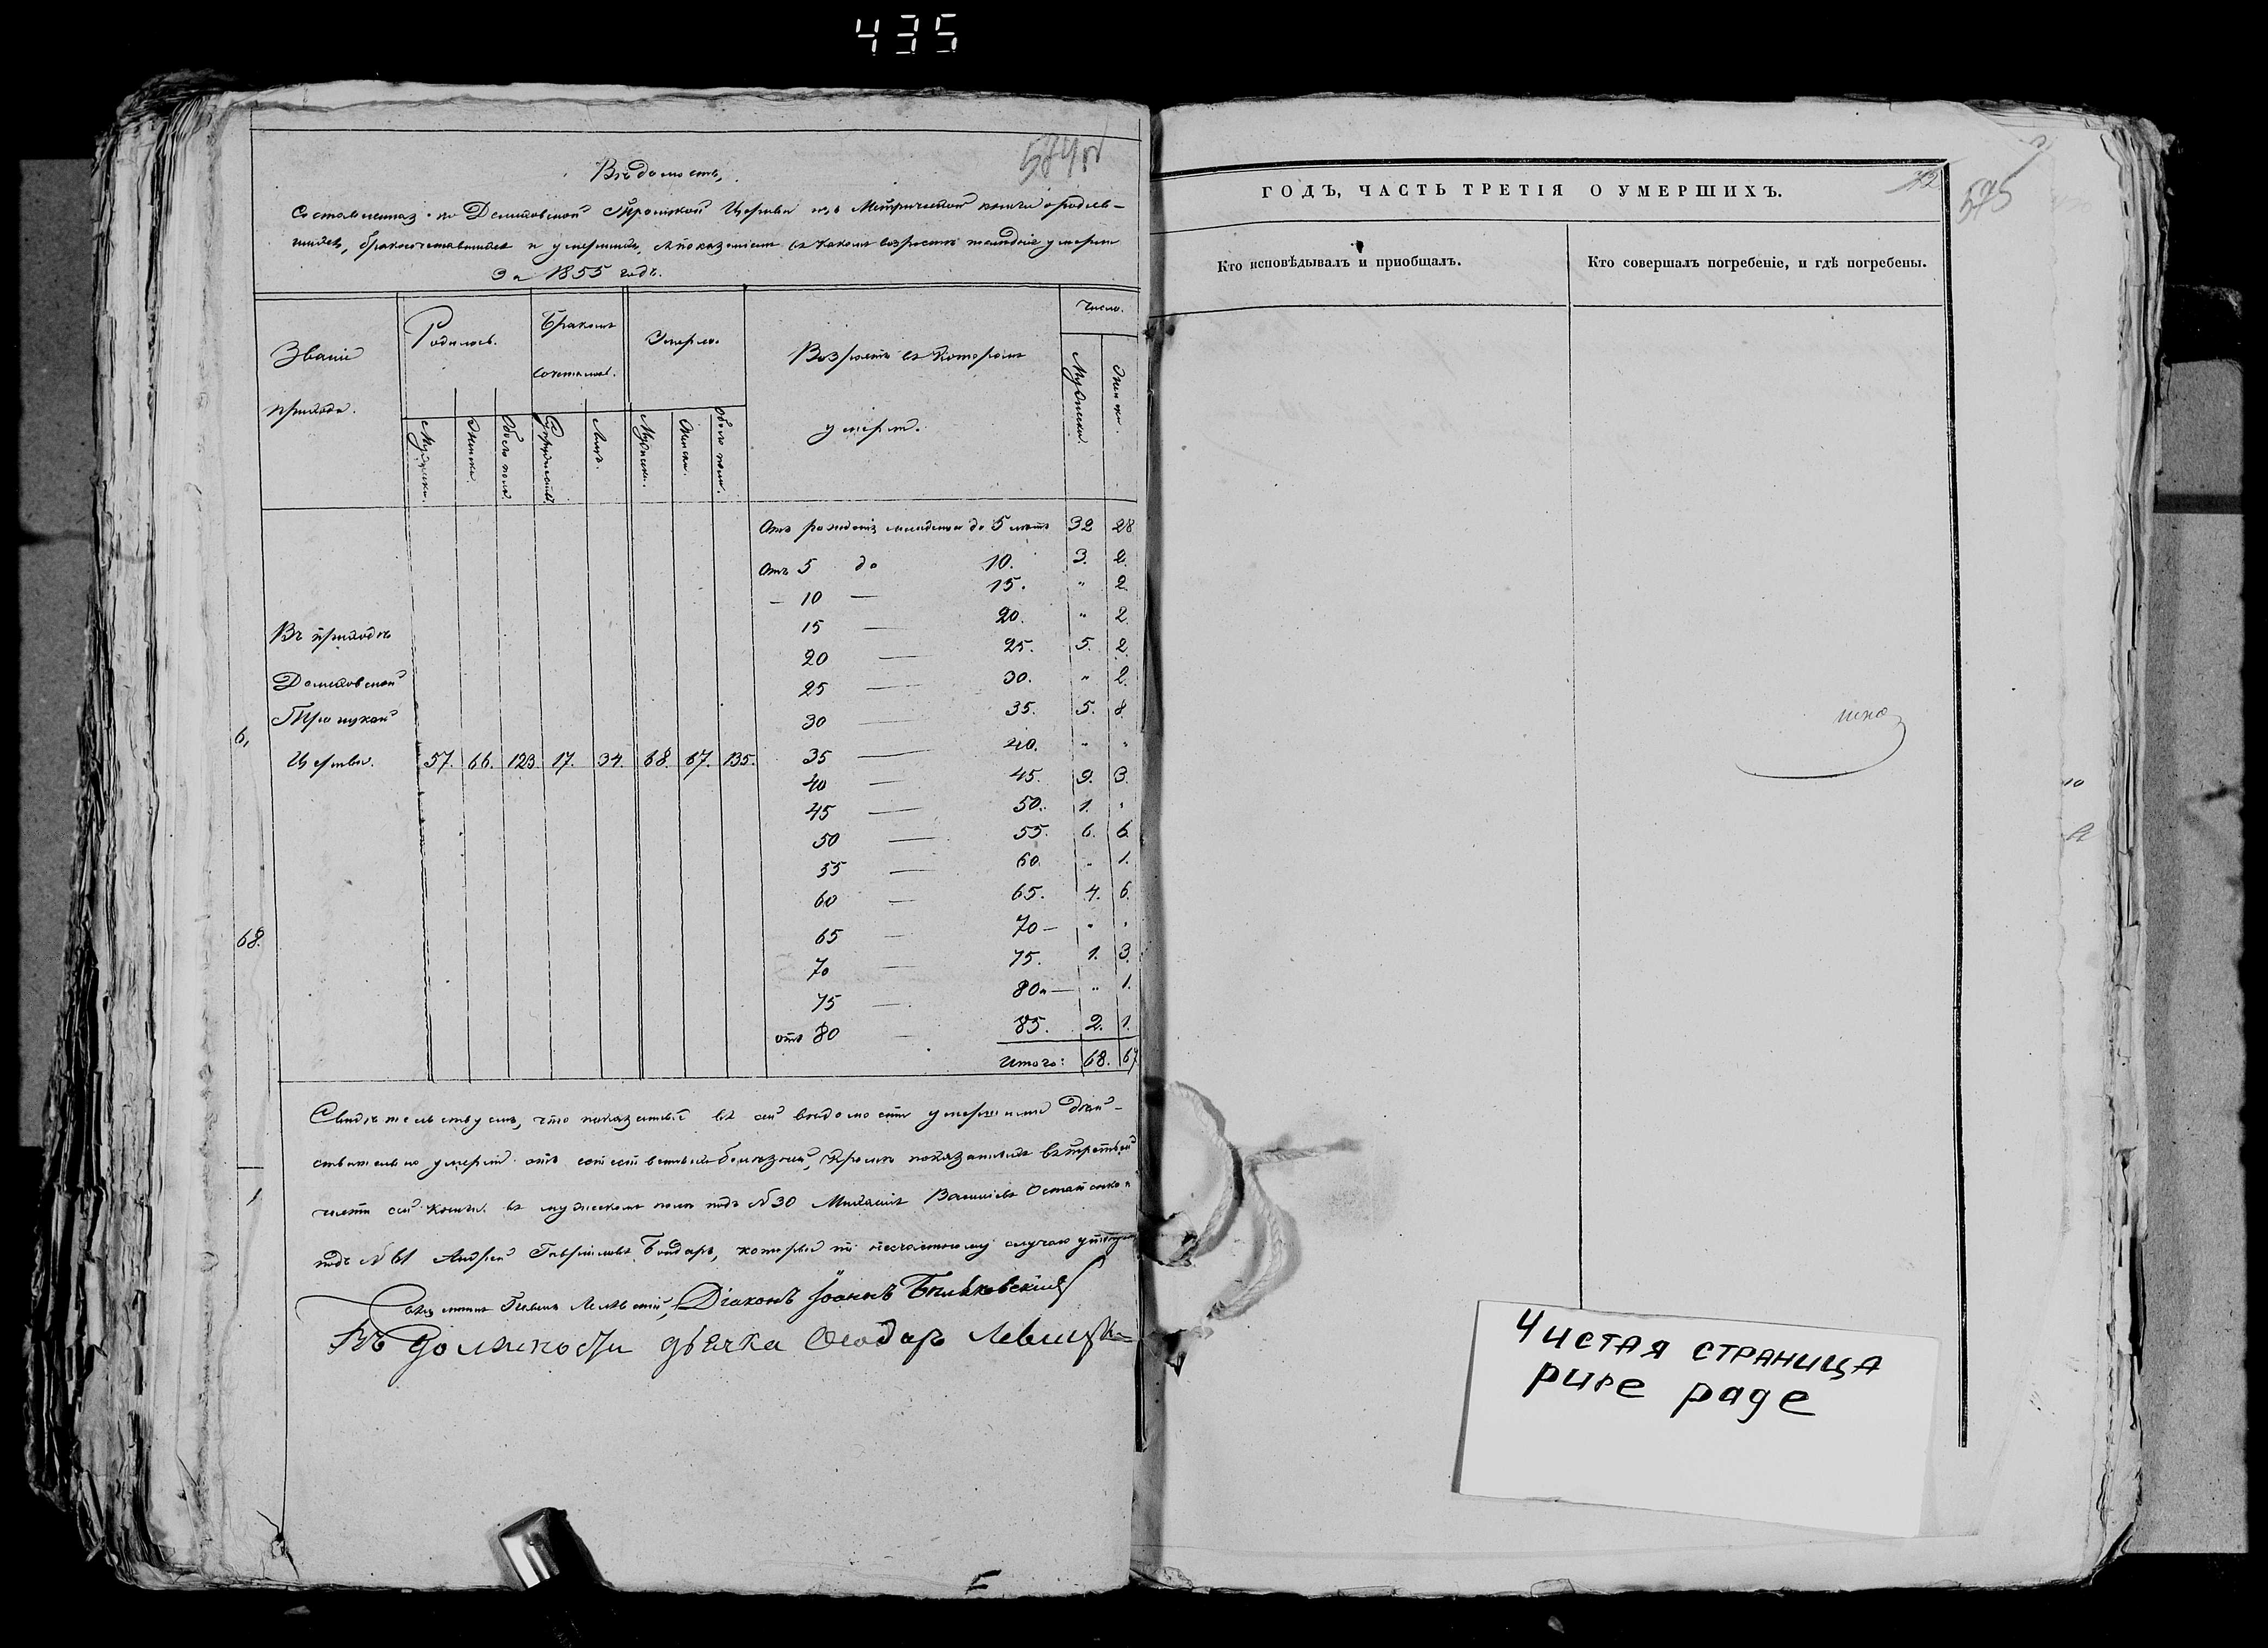 435
Вѣдомость,
Составленная по Троицкой Церкви изъ Метрической книги о родив-
шихся, бракосочетавшихся и умершихъ, съ показаніемъ въ какомъ возрастѣ послѣдніе умерли
За 1855 годъ.
Званіе прихода.
Родилось.
Бракомъ сочеталось.
Умерло.
Возрастъ въ которомъ умерли.
Число.
Мужеска. Женска. Обоего пола. Супружествъ. Лицъ. Мужеска. Женска. Обоего пола. Мужеска. Женска.
Отъ рожденія младенцы до 5 лѣтъ 32 28
Отъ 5 до 10. 3. 2.
– 10 — 15. " 2.
15 — 20. " 2.
20 — 25. 5. 2.
25 — 30. " 2.
30 — 35. 5. 8.
35 — 40. " "
40 — 45. 9. 3.
45 — 50. 1. "
50 — 55. 6. 6.
55 — 60. " 1.
60 — 65. 4. 6.
65 — 70 — " "
70 — 75. 1. 3.
75 — 80 — " 1.
отъ 80 — 85. 2. 1.
Итого: 68. 67
Въ приходѣ
Троицкой
Церкви. 57. 66. 123. 17. 34. 68. 67. 135.
6,
68.
1
Свидѣтельствуемъ, что показанные въ сей вѣдомости умершими дѣй-
ствительно умерли отъ естественныхъ болѣзней, кромѣ показанныхъ въ третьей
части сей книги въ мужескомъ полѣ подъ N 30 Михаилъ Васильевъ и
подъ N 61 Андрей Гавріиловъ Бондарь, которые по несчастному случаю
Діаконъ Іоаннъ
Въ должности дьячка Ѳеодоръ Левицк
ГОДЪ, ЧАСТЬ ТРЕТІЯ О УМЕРШИХЪ.
575
Кто исповѣдывалъ и пріобщалъ.
Кто совершалъ погребеніе, и гдѣ погребены.
Чистая страница
pure page